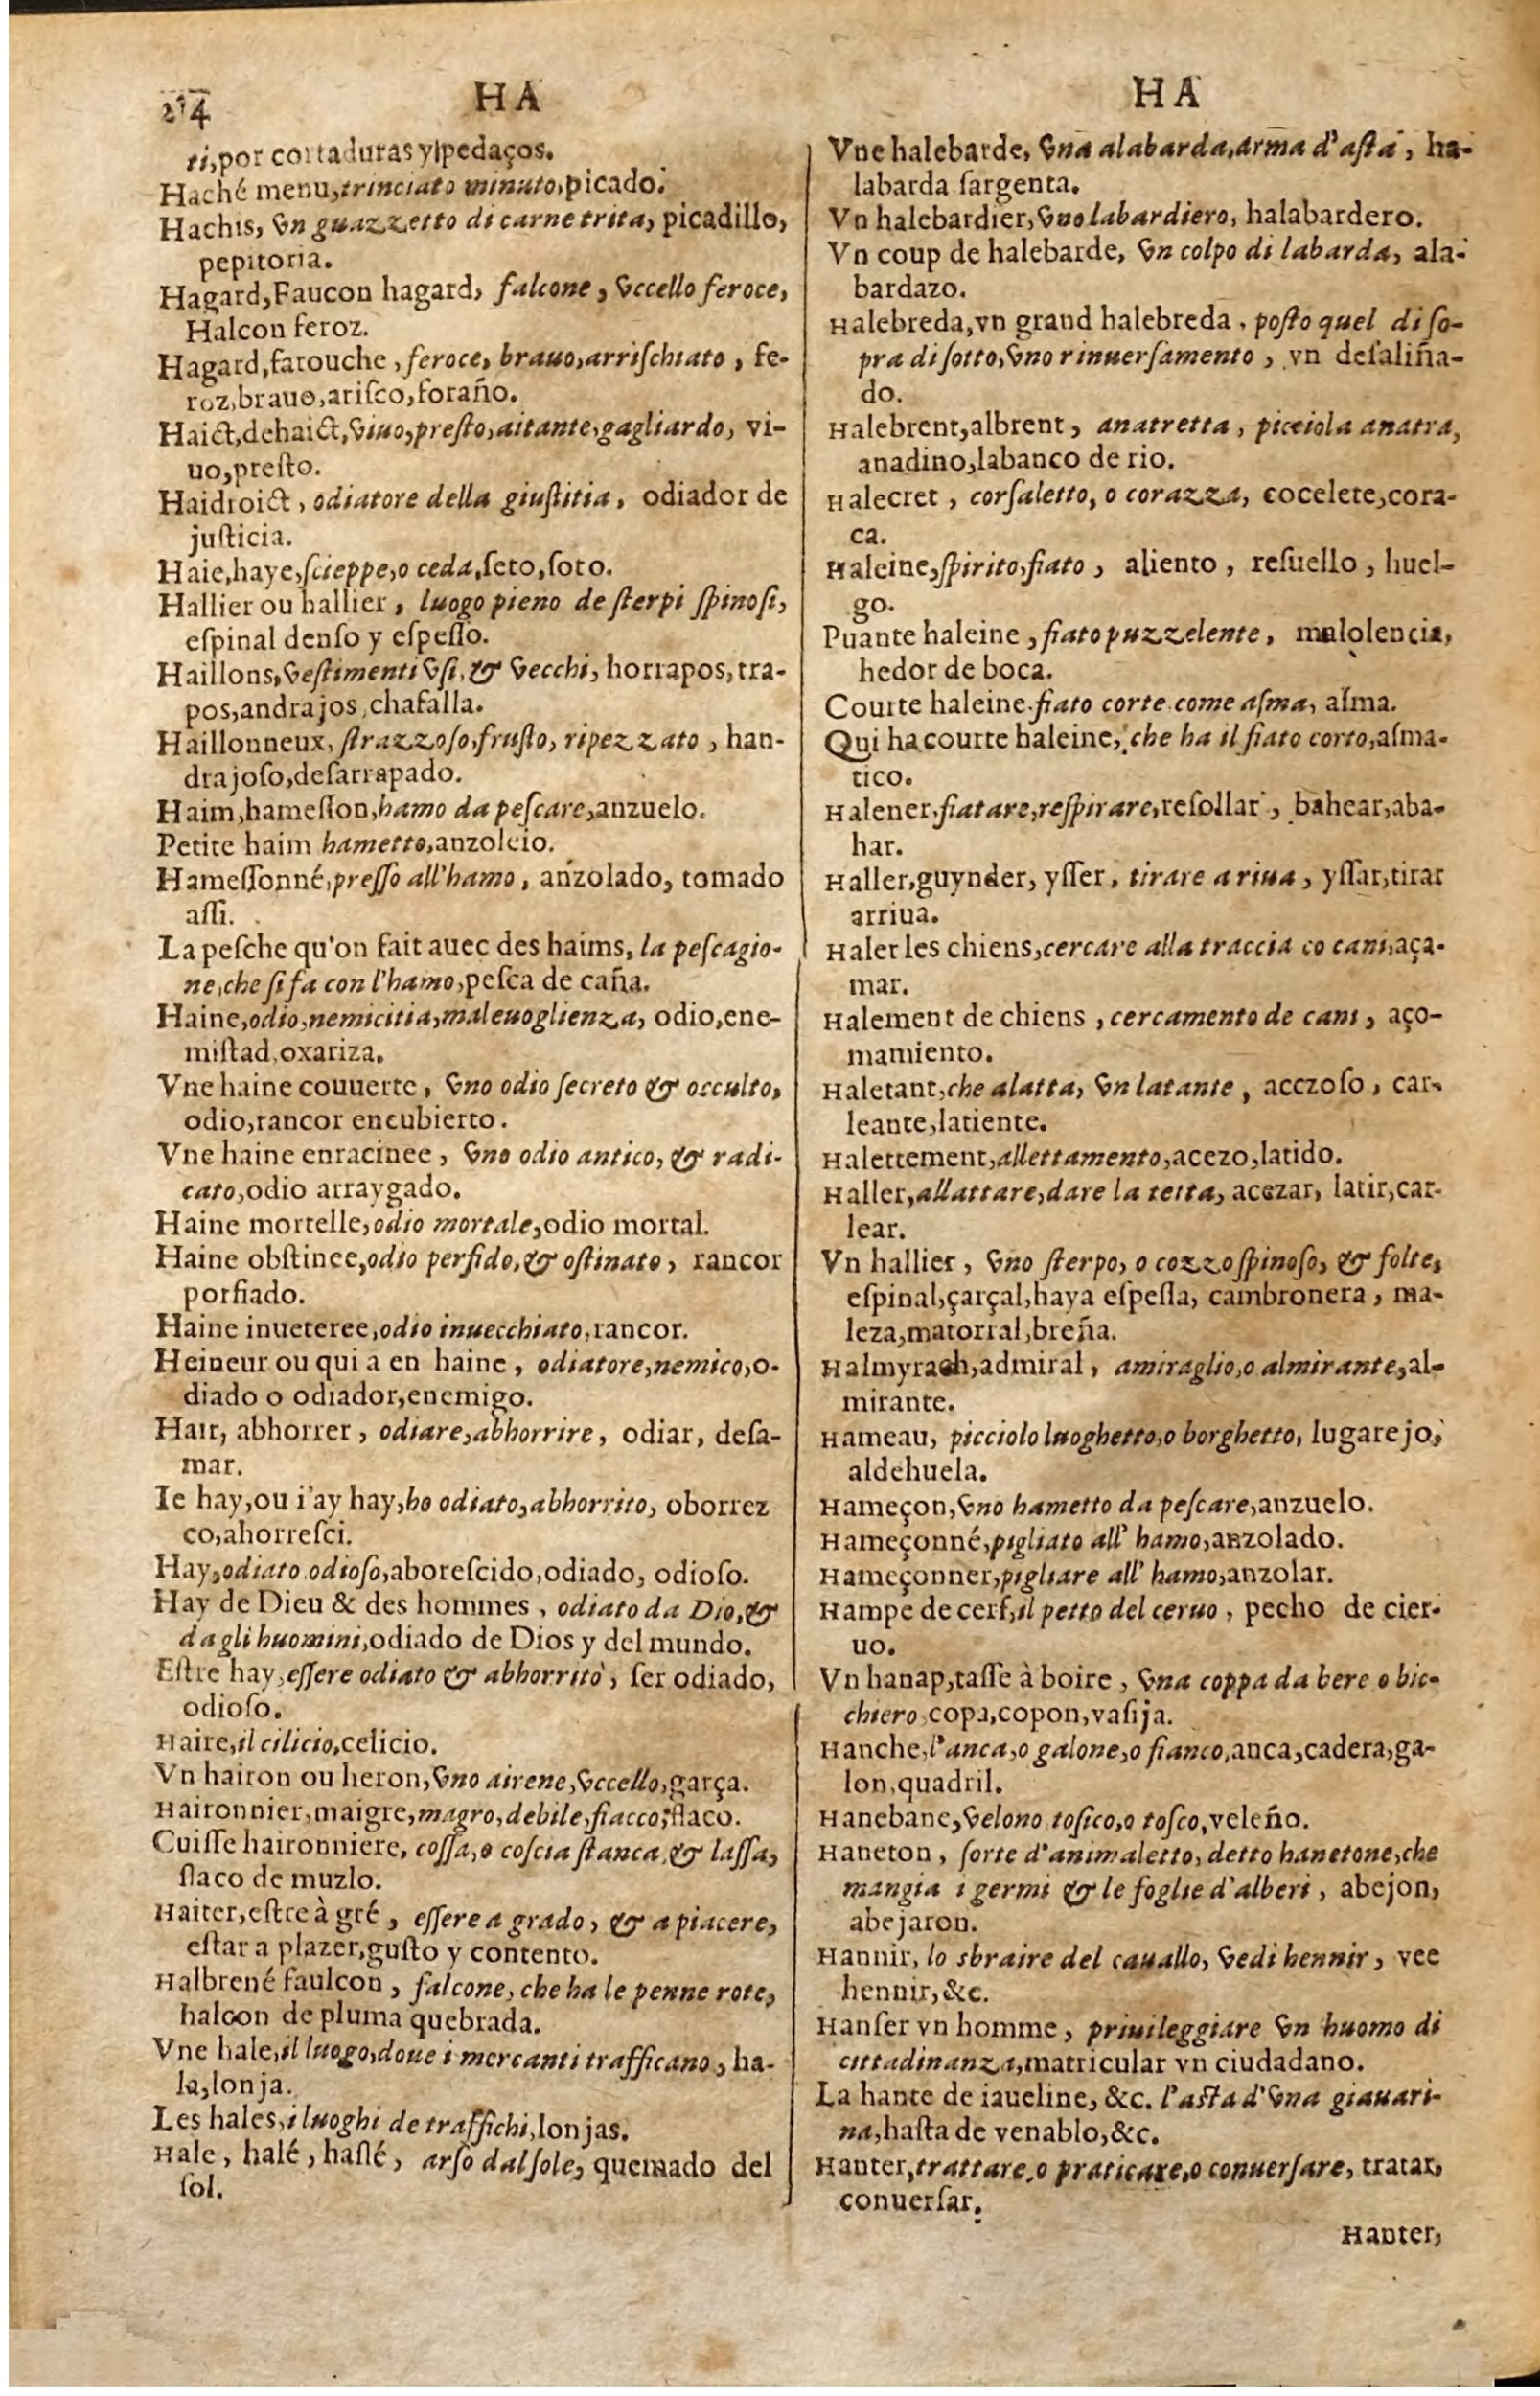 214
HA
ti,por cortaduras y pedaços.
Haché menu,trinciato minuto,picado.
Hachis, vn guazzetto di carne trita, picadillo,
pepitoria.
Hagard,Faucon hagard, falcone, vccello feroce,
Halcon feroz.
Hagard,farouche, feroce, brauo,arriſchiato, fe-
roz,brauo,ariſco,foraño.
Haict,dehaict,viuo,preſto,aitante,gagliardo, vi-
uo,preſto.
Haidroict, odiatore della giuſtitia, odiador de
juſticia.
Haie,haye,ſcieppe,o ceda,ſeto,ſoto.
Hallier ou hallier, luogo pieno de ſterpi ſpinoſi,
eſpinal denſo y eſpeſſo.
Haillons,veſtimenti vſi, & vecchi, horrapos, tra-
pos,andrajos,chafalla.
Haillonneux, ſtrazzoſo,fruſto, ripezzato, han-
drajoſo,deſarrapado.
Haim,hameſſon,hamo da peſcare,anzuelo.
Petite haim hametto,anzoleio.
Hameſſonné,preſſo all'hamo, anzolado, tomado
aſſi.
La peſche qu'on fait auec des haims, la peſcagio-
ne,che ſi fa con l'hamo,peſca de caña.
Haine,odio,nemicitia,maleuoglienza, odio,ene-
miſtad,oxariza.
Vne haine couuerte, vno odio ſecreto & occulto,
odio,rancor encubierto.
Vne haine enracinee, vno odio antico, & radi-
cato,odio arraygado.
Haine mortelle,odio mortale,odio mortal.
Haine obſtinee,odio perfido,& oſtinato, rancor
porfiado.
Haine inueteree,odio inuecchiato,rancor.
Heineur ou qui a en haine, odiatore,nemico,o-
diado o odiador,enemigo.
Hair, abhorrer, odiare,abhorrire, odiar, deſa-
mar.
Ie hay,ou i'ay hay,ho odiato,abhorrito, oborrez
co,ahorreſci.
Hay,odiato odioſo,aboreſcido,odiado, odioſo.
Hay de Dieu & des hommes, odiato da Dio,&
dagli huomini,odiado de Dios y del mundo.
Eſtre hay,eſſere odiato & abhorrito, ſer odiado,
odioſo.
Haire,il cilicio,celicio.
Vn hairon ou heron,vno airene,vccello,garça.
Haironnier,maigre,magro,debile,fiacco,flaco.
Cuiſſe haironniere, coſſa,o coſcia ſtanca,& laſſa,
flaco de muzlo.
Haiter,eſtre à gré, eſſere a grado, & a piacere,
eſtar a plazer,guſto y contento.
Halbrené faulcon, falcone, che ha le penne rote,
halcon de pluma quebrada.
Vne hale,il luogo,doue i mercanti trafficano, ha-
la,lonja.
Les hales,i luoghi de traffichi,lonjas.
Hale, halé, haſlé, arſo dal ſole, quemado del
ſol.
HA
Vne halebarde, vna alabarda,arma d'aſta, ha-
labarda ſargenta.
Vn halebardier,vno labardiero, halabardero.
Vn coup de halebarde, vn colpo di labarda, ala-
bardazo.
Halebreda,vn grand halebreda, poſto quel di ſo-
pra di ſotto,vno rinuerſamento, vn deſaliña-
do.
Halebrent,albrent, anatretta, picciola anatra,
anadino,labanco de rio.
Halecret, corſaletto, o corazza, cocelete,cora-
ca.
Haleine,ſpirito,fiato, aliento, reſuello, huel-
go.
Puante haleine, fiato puzzelente, malolencia,
hedor de boca.
Courte haleine.fiato corte come aſma, aſma.
Qui ha courte haleine, che ha il fiato corto,aſma-
tico.
Halener,fiatare,reſpirare,reſollar, bahear,aba-
har.
Haller,guynder, yſſer, tirare a riua, yſſar,tirar
arriua.
Haler les chiens,cercare alla traccia co cani,aça-
mar.
Halement de chiens, cercamento de cani, aço-
mamiento.
Haletant,che alatta, vn latante, acezoſo, car-
leante,latiente.
Halettement,allettamento,acezo,latido.
Haller,allattare,dare la tetta, acezar, latir,car-
lear.
Vn hallier, vno ſterpo, o cozzo ſpinoſo, & folte,
eſpinal,çarçal,haya eſpeſſa, cambronera, ma-
leza,matorral,breña.
Halmyrach,admiral, amiraglio,o almirante,al-
mirante.
Hameau, picciolo luoghetto,o borghetto, lugarejo,
aldehuela.
Hameçon,vno hametto da peſcare,anzuelo.
Hameçonné,pigliato all' hamo,anzolado.
Hameçonner,pigliare all' hamo,anzolar.
Hampe de cerf,il petto del ceruo, pecho de cier-
uo.
Vn hanap,taſſe à boire, vna coppa da bere o bic-
chiero,copa,copon,vaſija.
Hanche,l'anca,o galone,o fianco,anca,cadera,ga-
lon,quadril.
Hanebane,velono toſico,o toſco,veleño.
Haneton, ſorte d'animaletto, detto hanetone,che
mangia i germi & le foglie d'alberi, abejon,
abejaron.
Hannir, lo sbraire del cauallo, vedi hennir, vee
hennir,&c.
Hanſer vn homme, priuileggiare vn huomo di
cittadinanza,matricular vn ciudadano.
La hante de iaueline, &c. l'aſta d'vna giauari-
na,haſta de venablo,&c.
Hanter,trattare,o praticare,o conuerſare, tratar,
conuerſar.
Hanter,